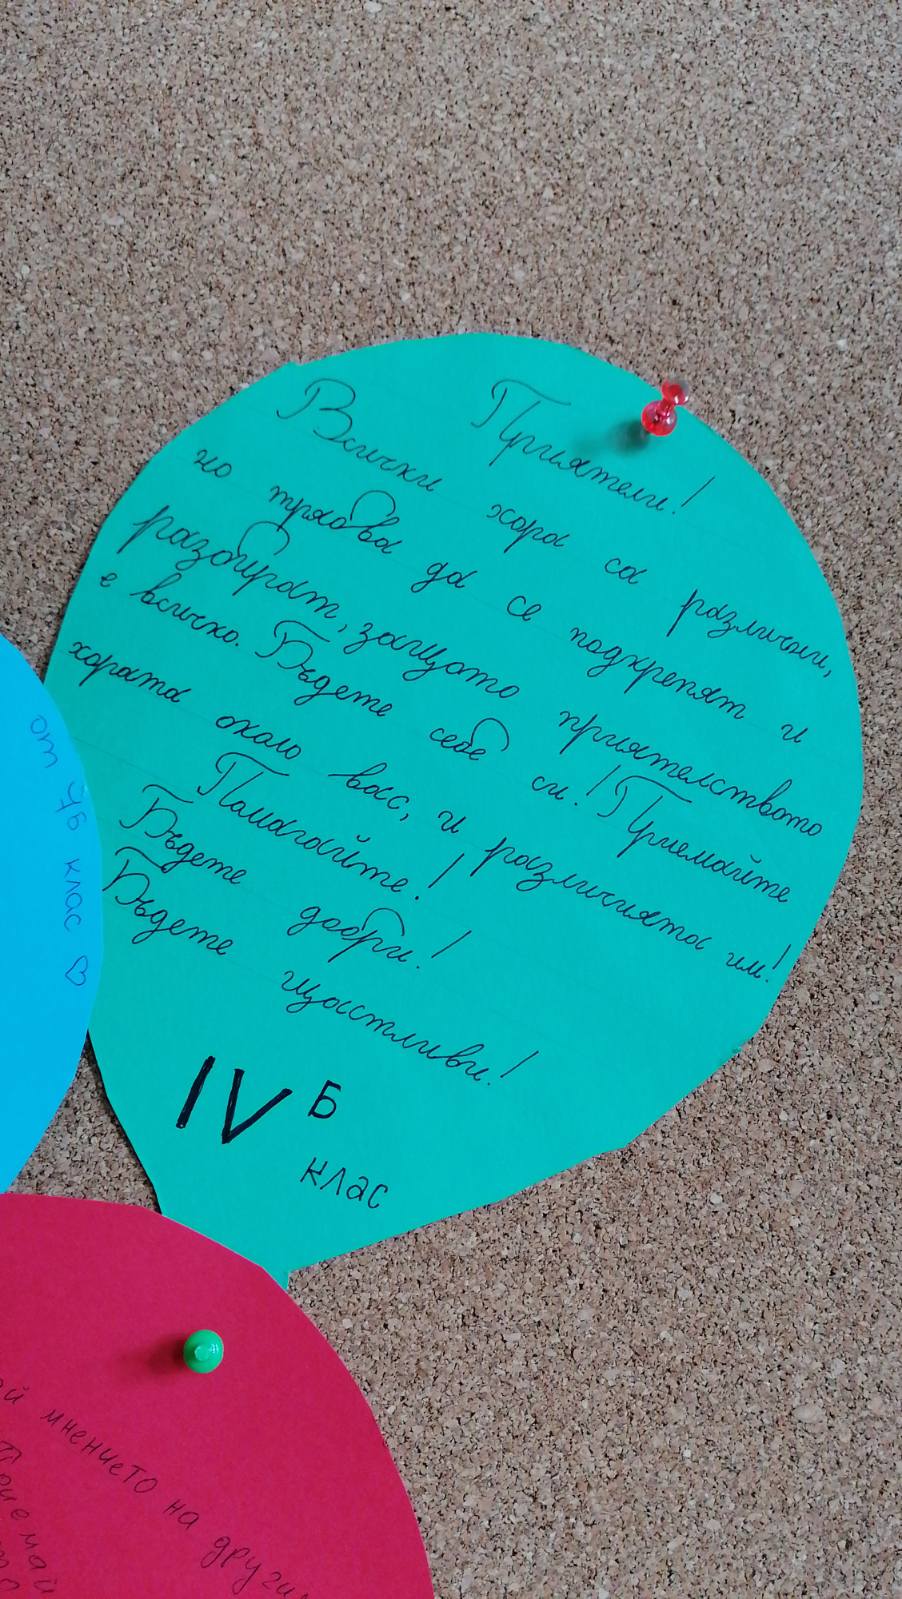 Приятели!
Всички хора са различни,
но трябва да се подкрепят и
разбират, защото приятелството
е всичко. Бъдете себе си! Приемайте
хората около вас, и различията им!
Помагайте!
Бъдете добри!
Бъдете щастливи!
IV Б
клас
от 7б клас ♡
мнението на други